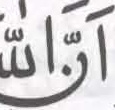 اَنَّ اللّٰه